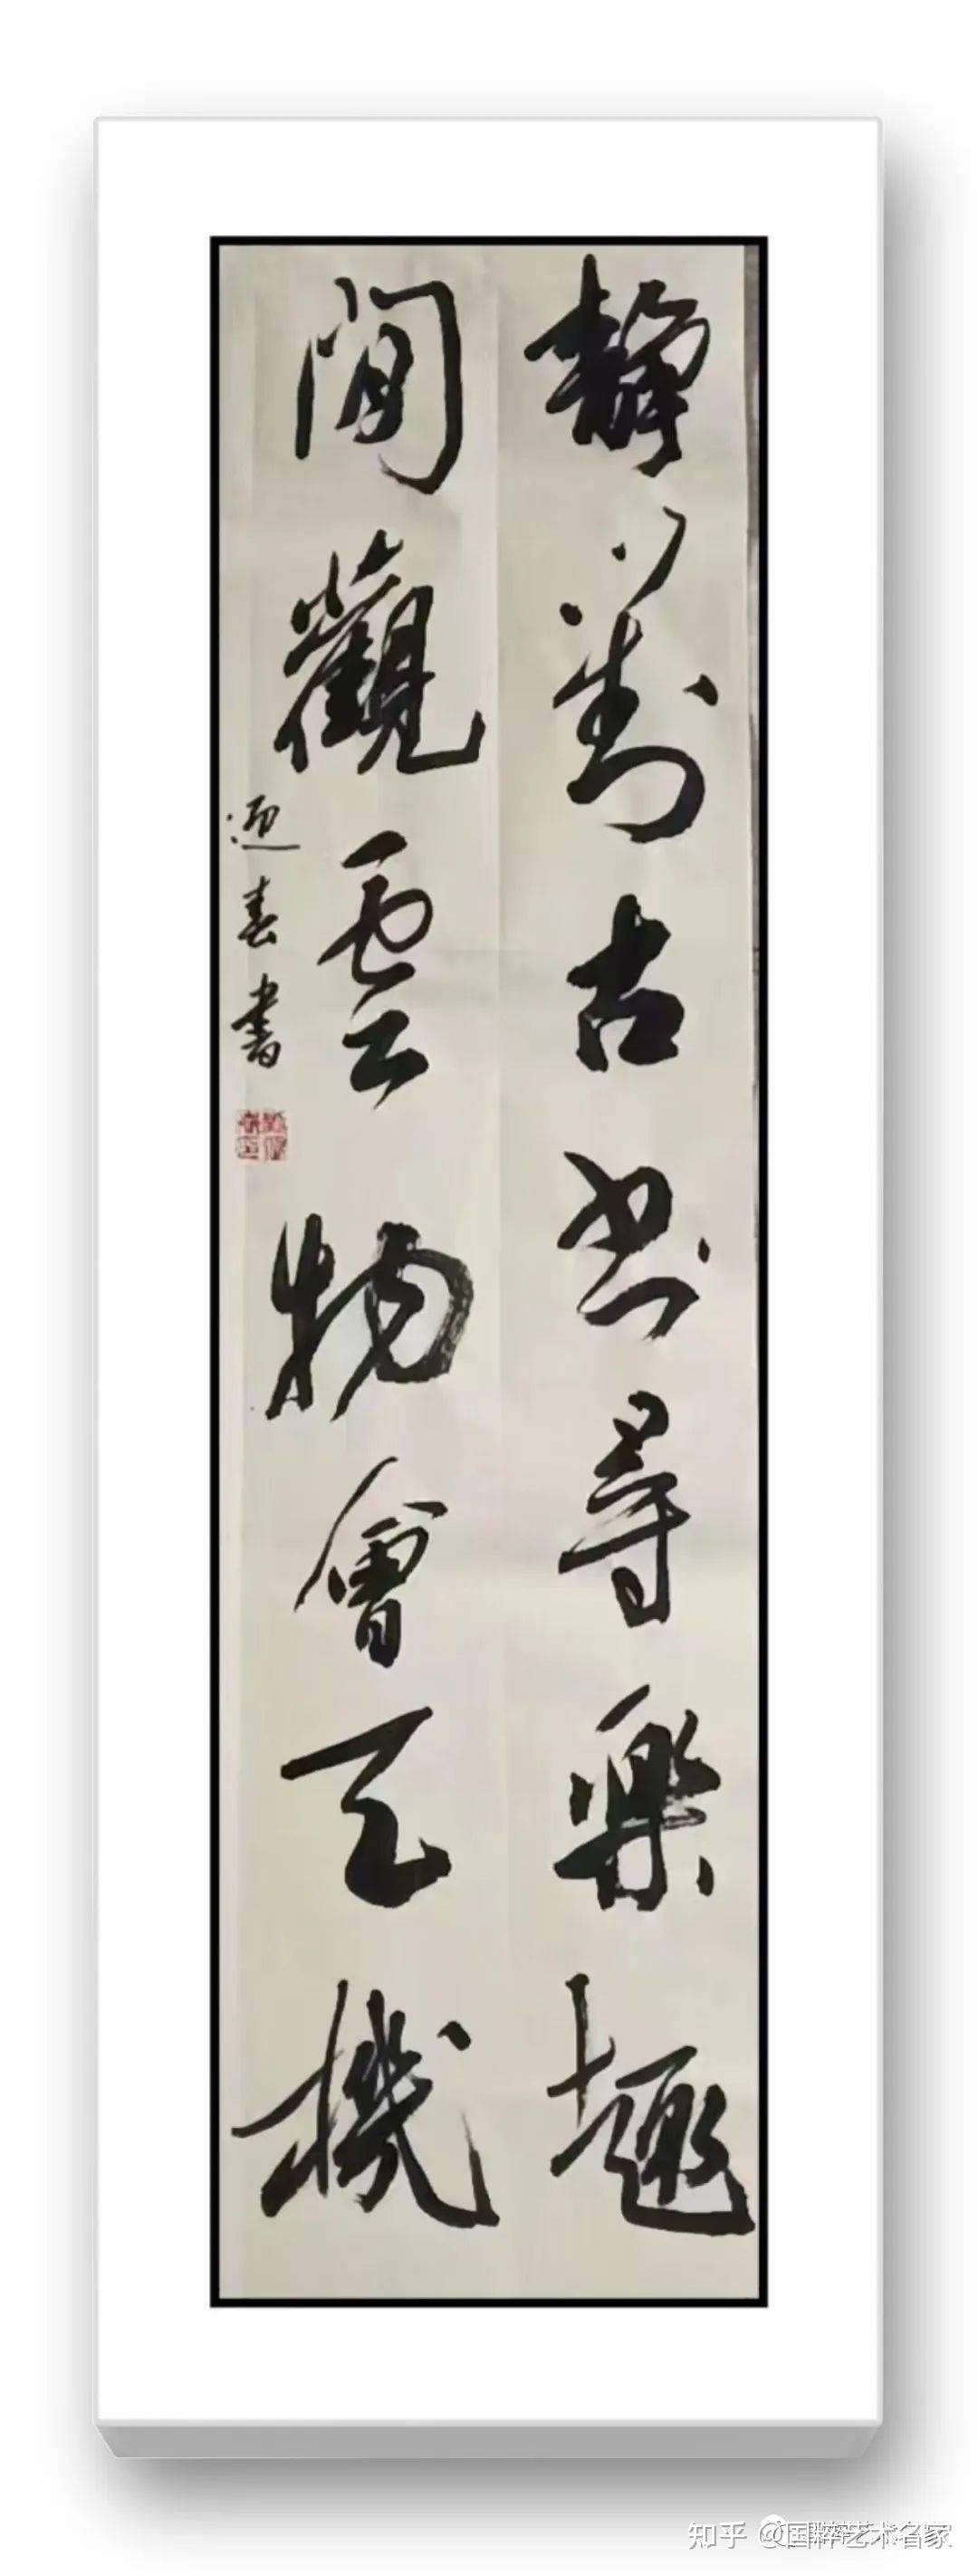 靜對古书尋樂趣
閒觀雲物會天機
迎春書
知乎 @国粹艺术名家